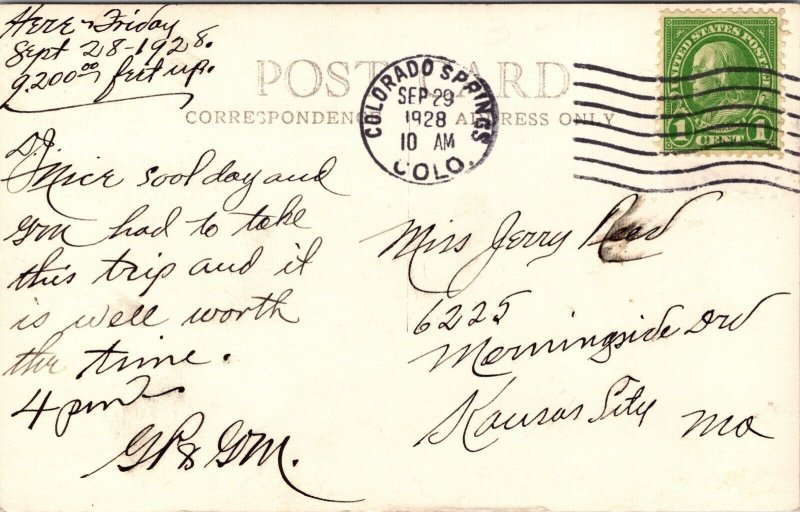 Here - Friday
Sept 28-1928.
9.200⁰⁰ feet up.
POST CARD
CORRESPONDENCE ADDRESS ONLY
COLORADO SPRINGS
SEP 29
1928
10 AM
COLO.
UNITED STATES POSTAGE
1 CENT 1
D.J.
Nice cool day and
GM had to take
this trip and it
is well worth
the time.
4 pm
GP & GM.
Miss Jerry Read
6225
Morningside Drv
Kansas City Mo